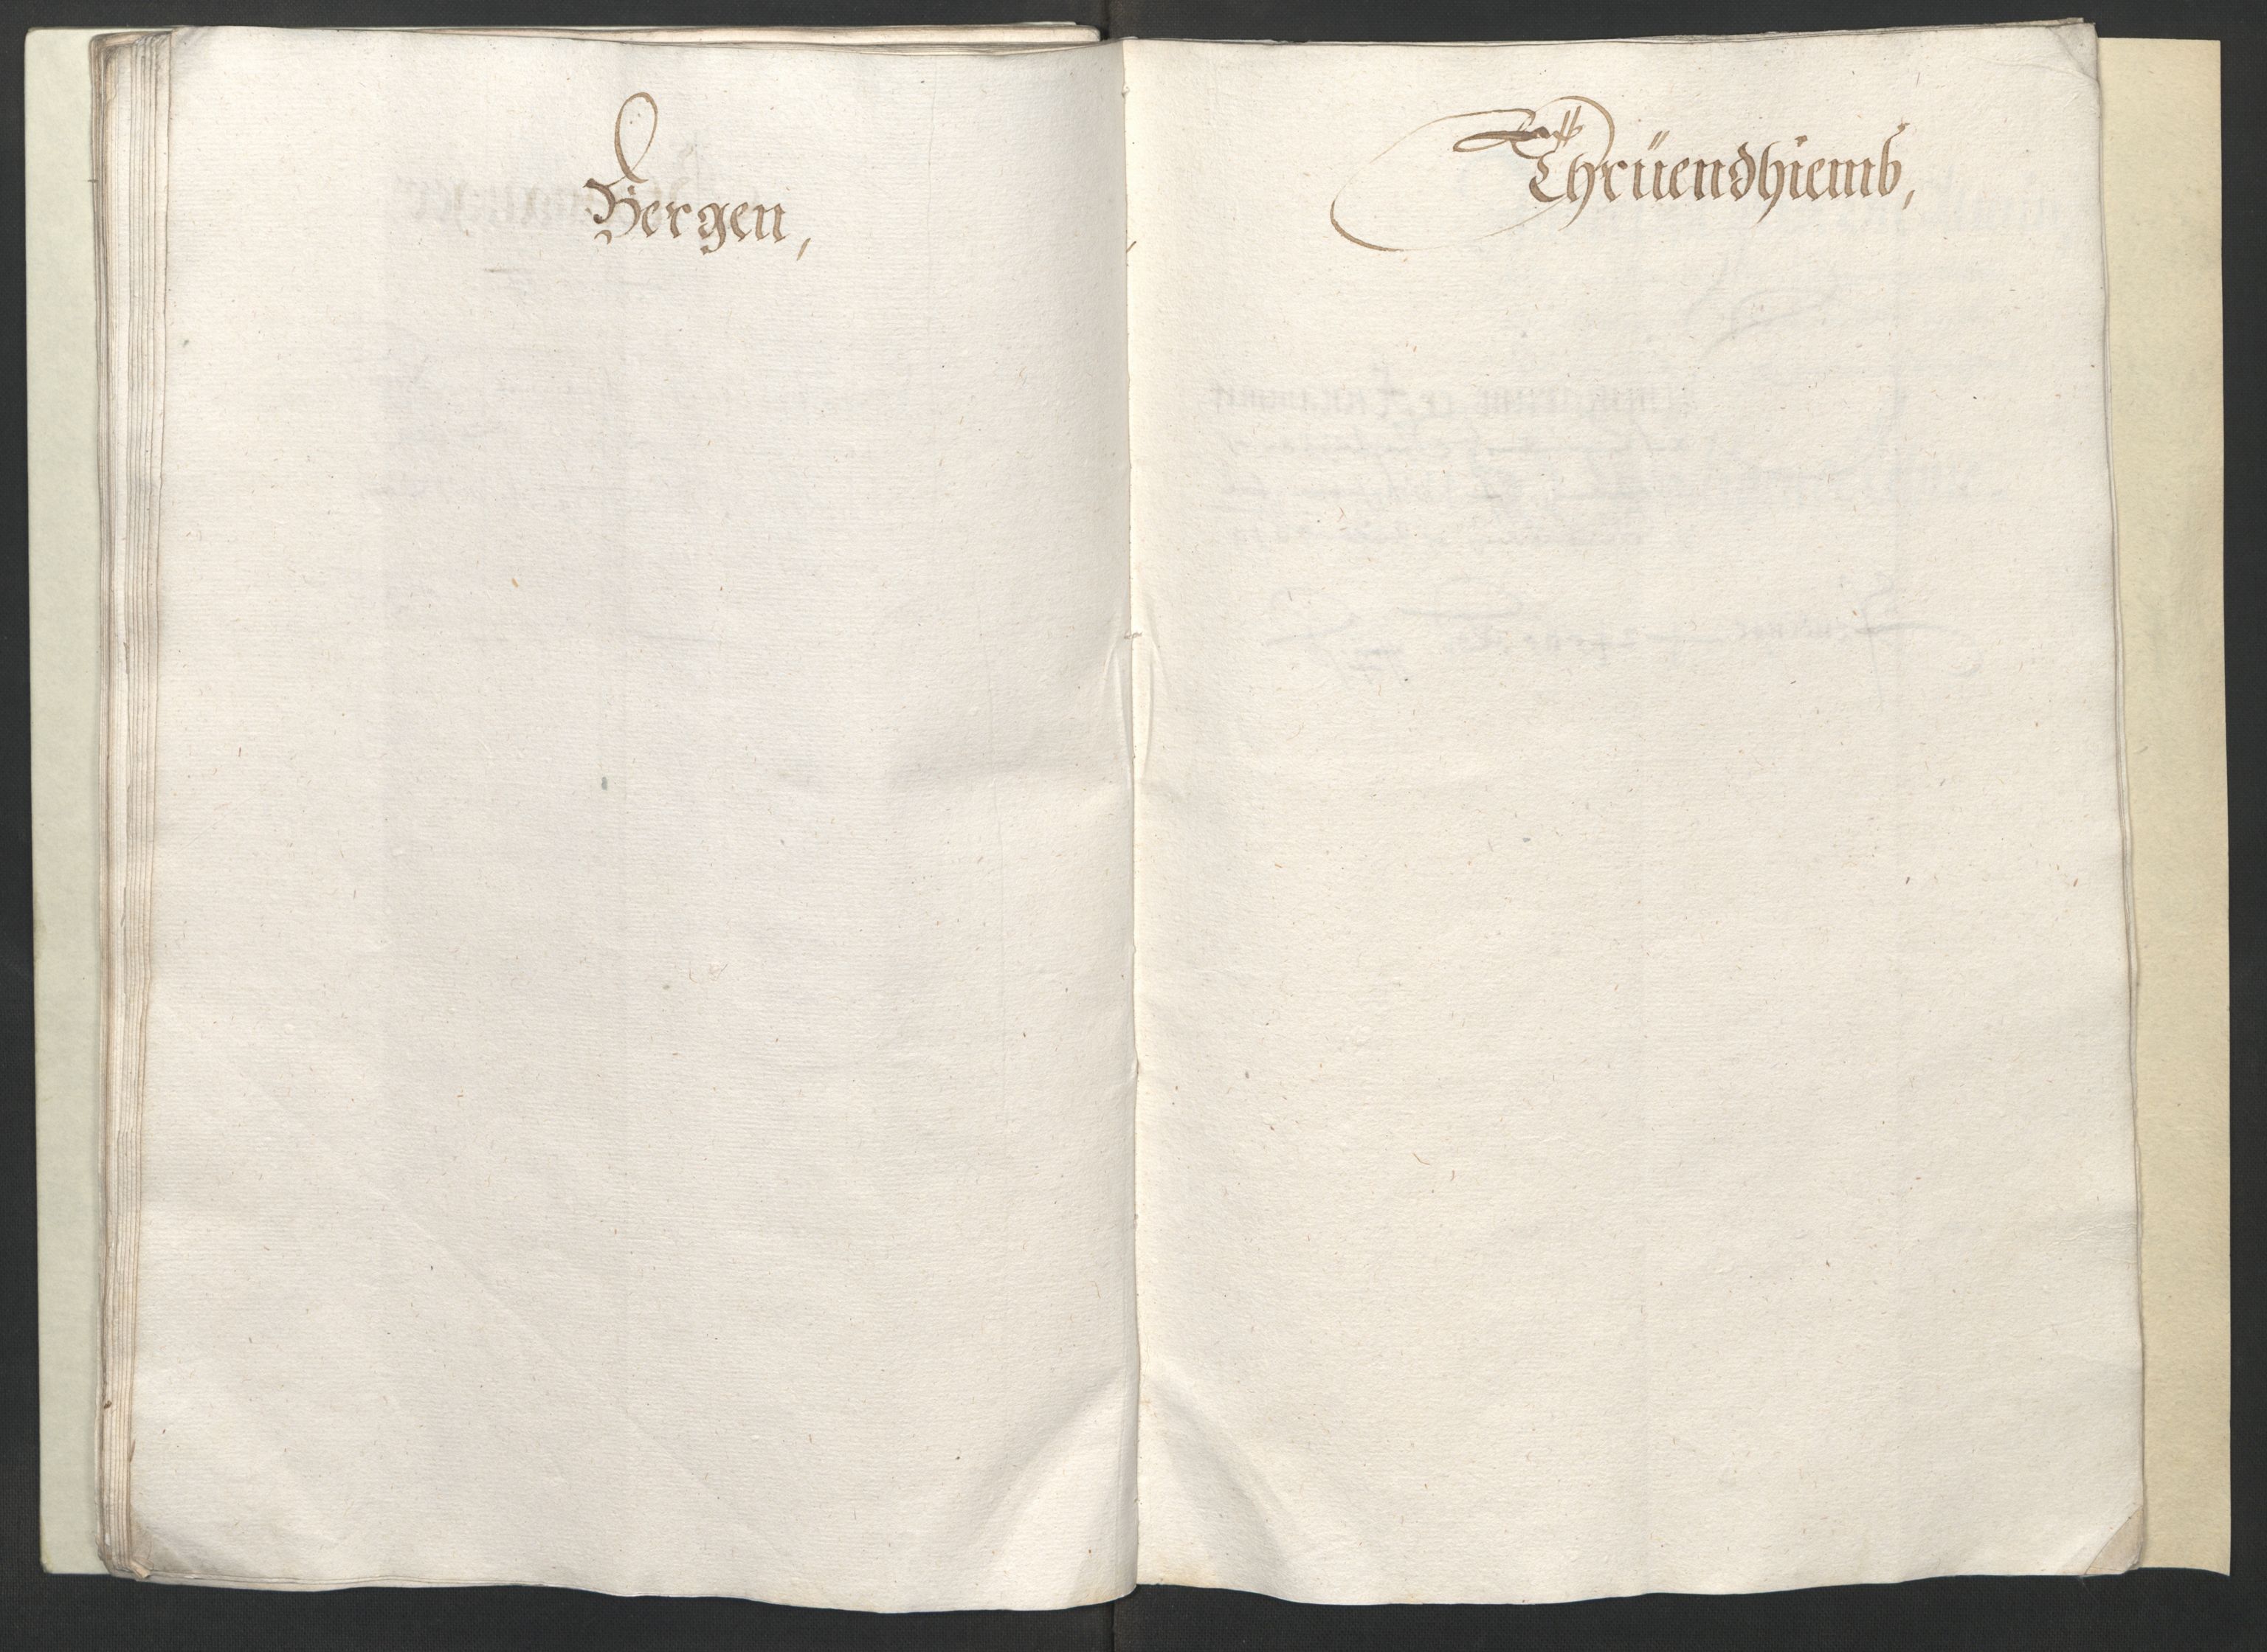 Bergen,
Thrüendhiemb,